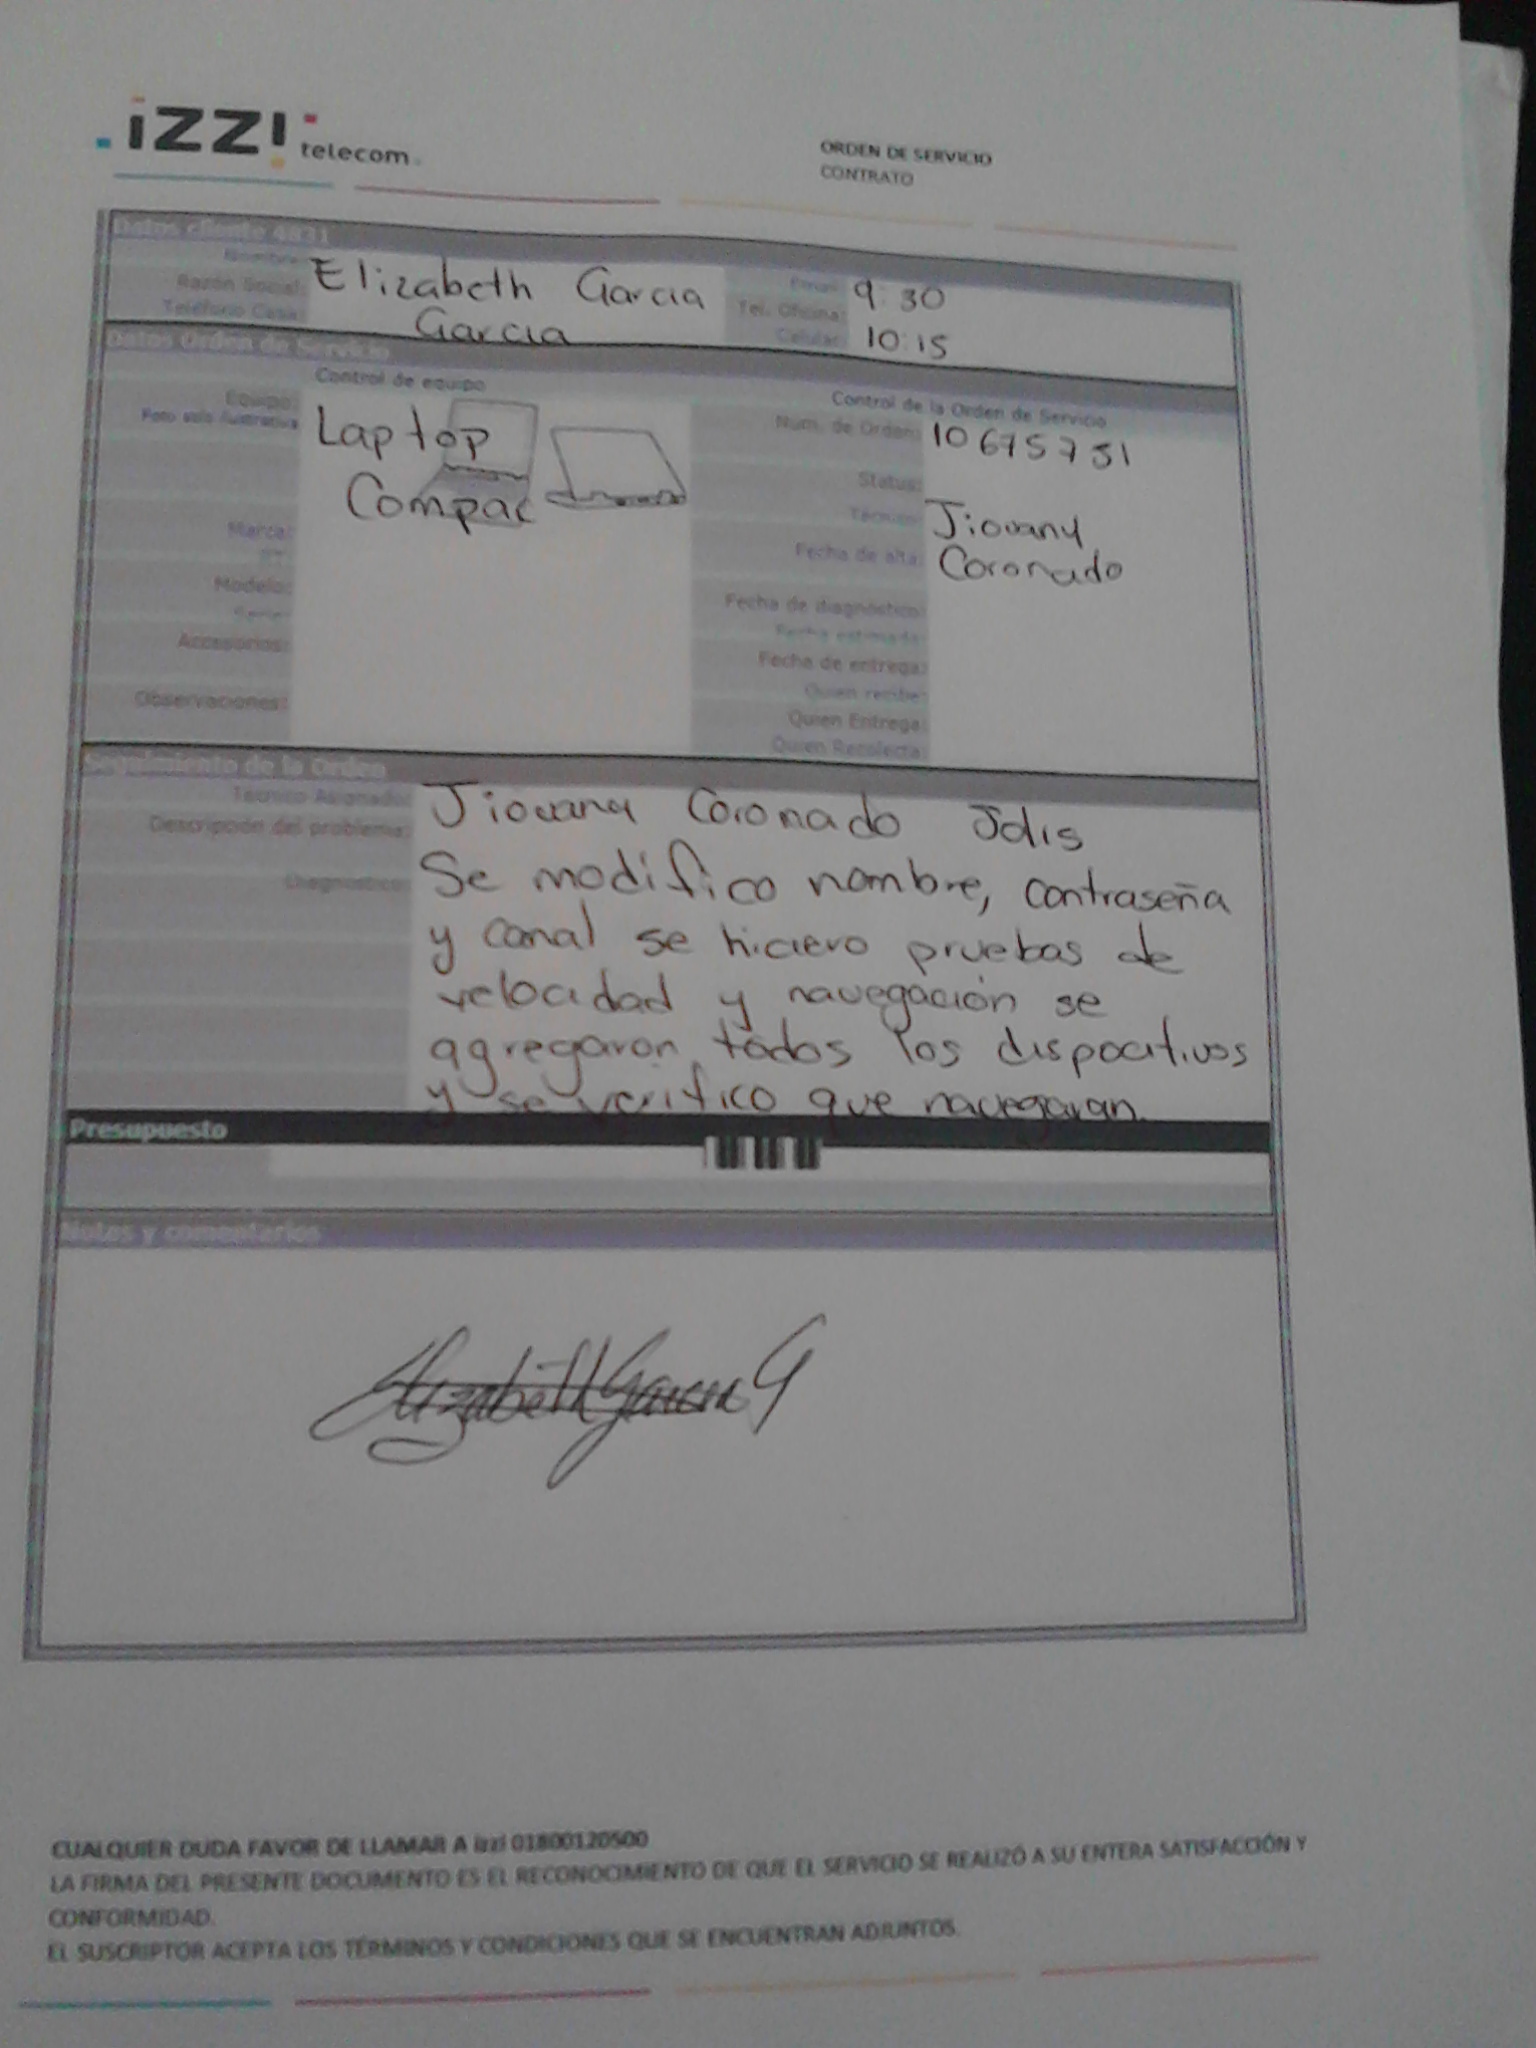 izzi telecom
ORDEN DE SERVICIO
CONTRATO
Datos cliente 4831
Nombre: Elizabeth Garcia
Garcia
Razón Social:
Teléfono Casa:
Email: 9:30
Tel. Oficina:
Celular: 10:15
Datos Orden de Servicio
Control de equipo
Equipo: Laptop
Foto solo ilustrativa
Compac
Marca:
Modelo:
Serie:
Accesorios:
Observaciones:
Control de la Orden de Servicio
Num. de Orden: 10675731
Status:
Técnico: Jiovany
Coronado
Fecha de alta:
Fecha de diagnóstico:
Fecha estimada:
Fecha de entrega:
Quien recibe:
Quien Entrega:
Quien Recolecta:
Seguimiento de la Orden
Técnico Asignado: Jiovany Coronado
Descripción del problema:
Diagnóstico: Se modifico nombre, contraseña
y canal se hiciero pruebas de
velocidad y navegación se
agregaron todos los dispocitivos
y se verifico que navegaran.
Presupuesto
Notas y comentarios
Elizabeth Garcia G
CUALQUIER DUDA FAVOR DE LLAMAR A izzi 01800120500
LA FIRMA DEL PRESENTE DOCUMENTO ES EL RECONOCIMIENTO DE QUE EL SERVICIO SE REALIZÓ A SU ENTERA SATISFACCIÓN Y
CONFORMIDAD.
EL SUSCRIPTOR ACEPTA LOS TÉRMINOS Y CONDICIONES QUE SE ENCUENTRAN ADJUNTOS.